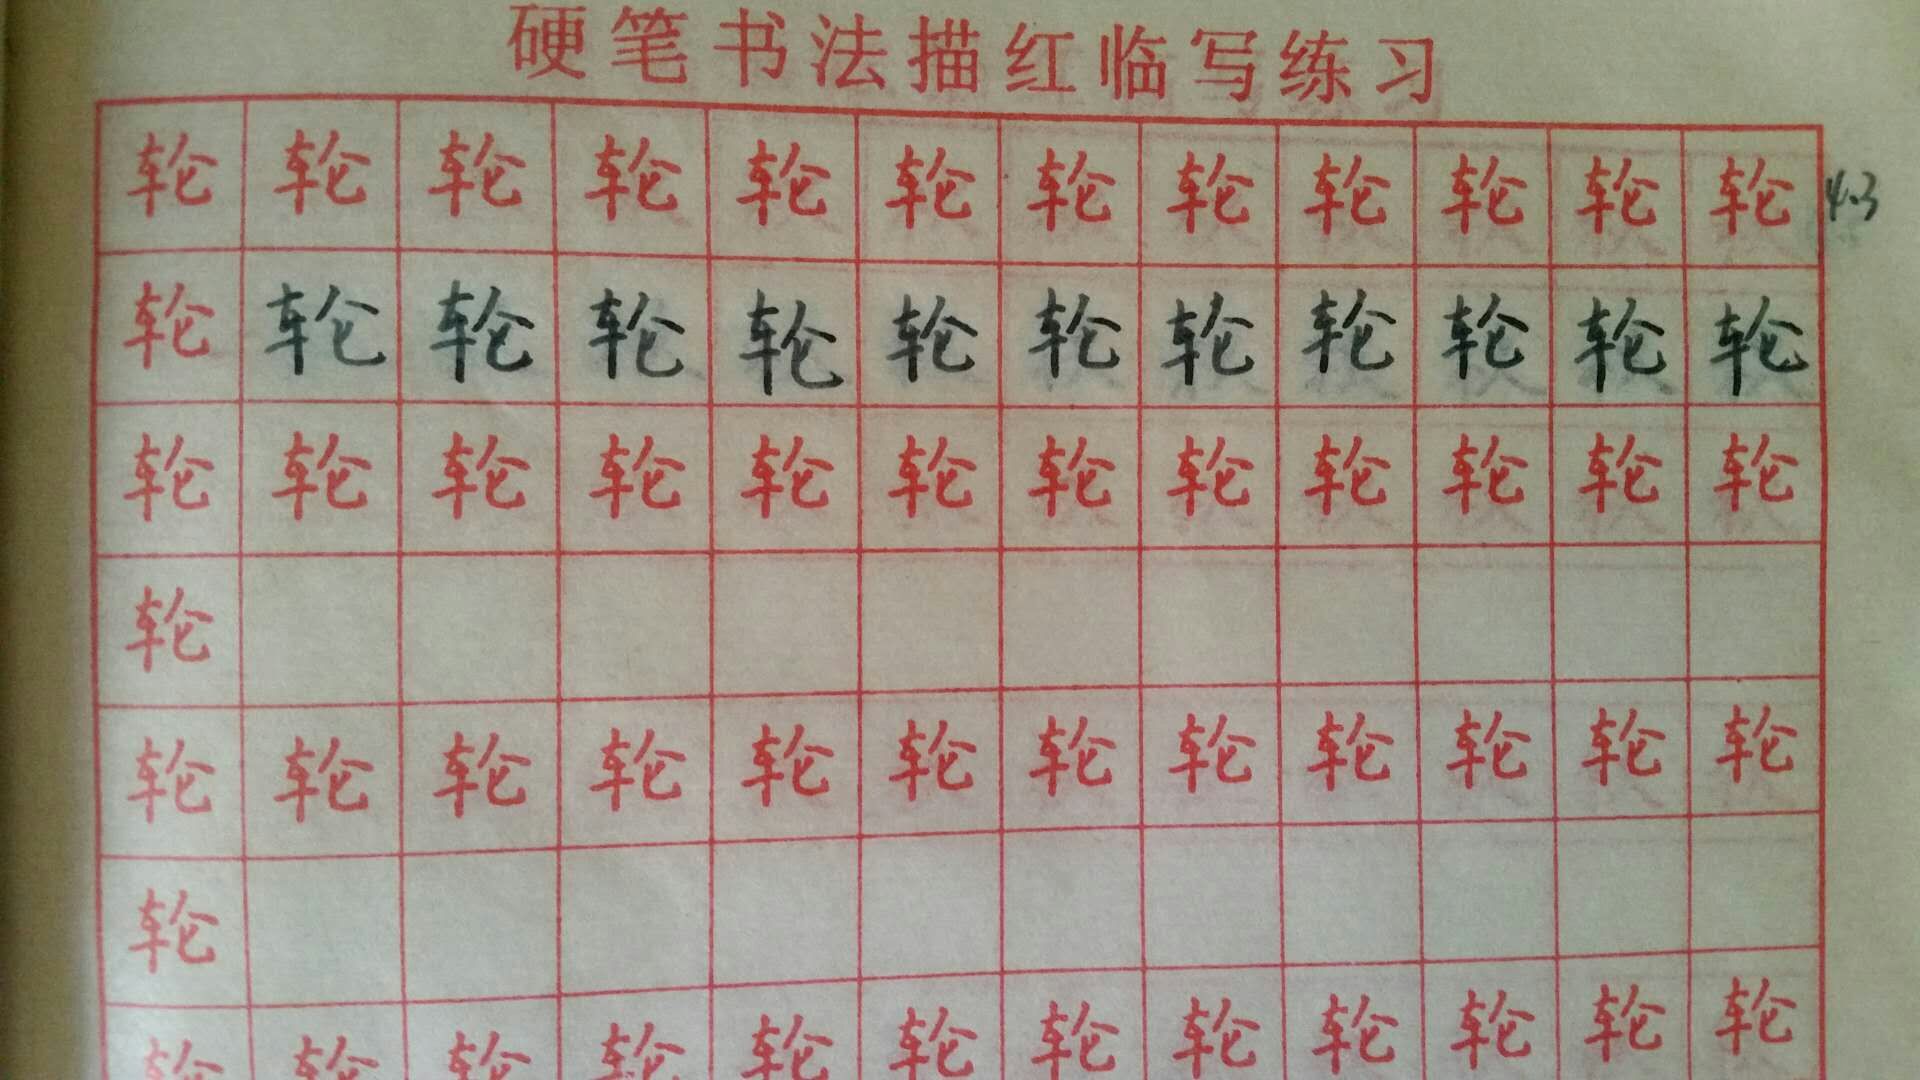 硬笔书法描红临写练习
轮 轮 轮 轮 轮 轮 轮 轮 轮 轮 轮 轮 4.3
轮 轮 轮 轮 轮 轮 轮 轮 轮 轮 轮 轮
轮 轮 轮 轮 轮 轮 轮 轮 轮 轮 轮 轮
轮
轮 轮 轮 轮 轮 轮 轮 轮 轮 轮 轮 轮
轮
轮 轮 轮 轮 轮 轮 轮 轮 轮 轮 轮 轮